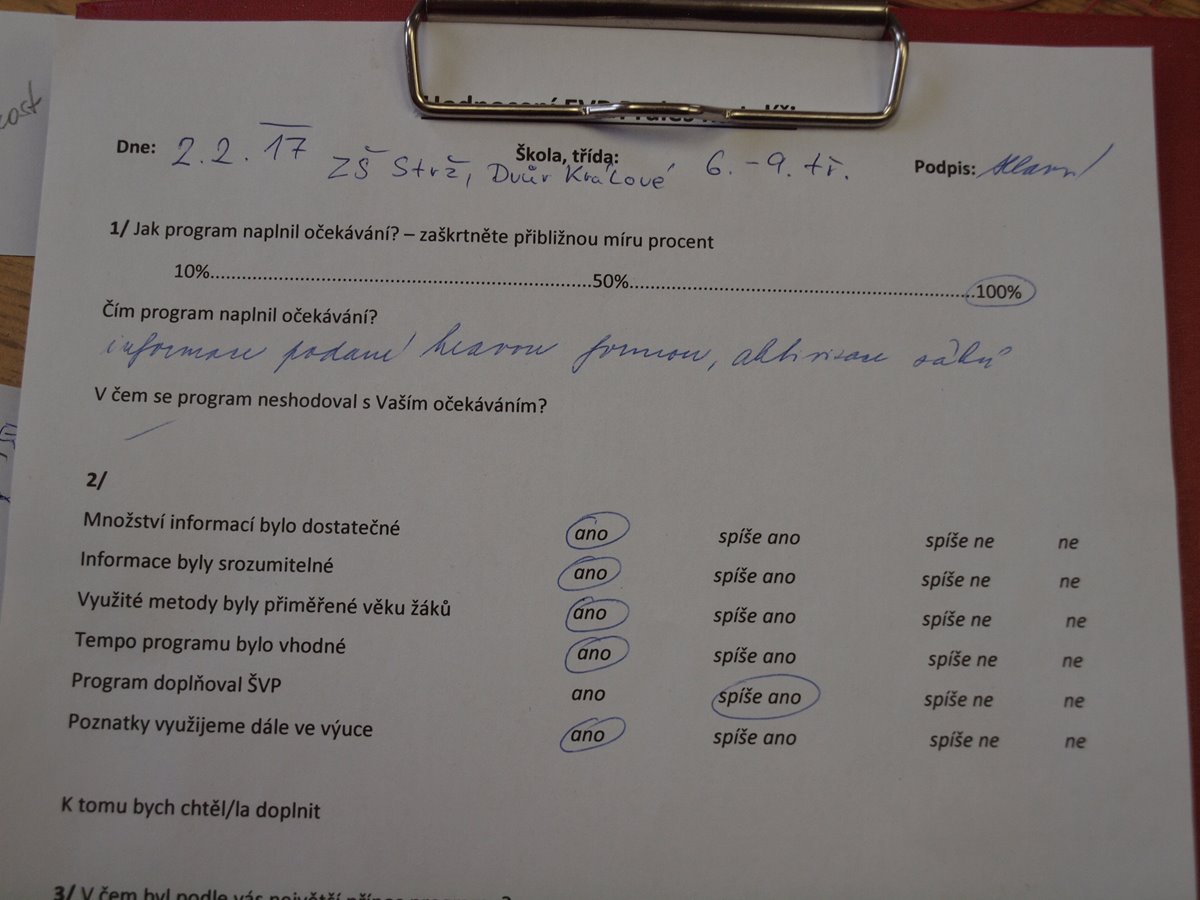 Hodnocení EVP
Dne: 2.2.17 Škola, třída: ZŠ Strž, Dvůr Králové 6.-9. tř. Podpis:
1/ Jak program naplnil očekávání? – zaškrtněte přibližnou míru procent
10%..............................................................50%........................................................100%
Čím program naplnil očekávání?
informace podané hravou formou, aktivizace žáků
V čem se program neshodoval s Vaším očekáváním?
2/
Množství informací bylo dostatečné ano spíše ano spíše ne ne
Informace byly srozumitelné ano spíše ano spíše ne ne
Využité metody byly přiměřené věku žáků ano spíše ano spíše ne ne
Tempo programu bylo vhodné ano spíše ano spíše ne ne
Program doplňoval ŠVP ano spíše ano spíše ne ne
Poznatky využijeme dále ve výuce ano spíše ano spíše ne ne
K tomu bych chtěl/la doplnit
3/ V čem byl podle vás největší přínos programu?